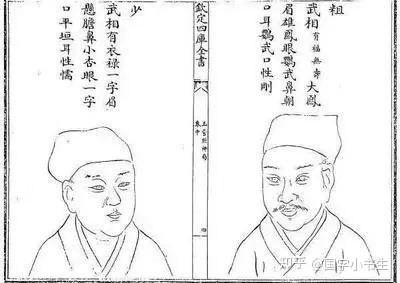 粗
武相有福無壽大鳳
眉雄鳳眼鸚武鼻朝
口耳鸚武口性剛
欽定四庫全書
玉管照神局
卷中
四
少
武相有衣祿一字眉
懸膽鼻小杏眼一字
口平垣耳性懦
知乎 @国字小书生